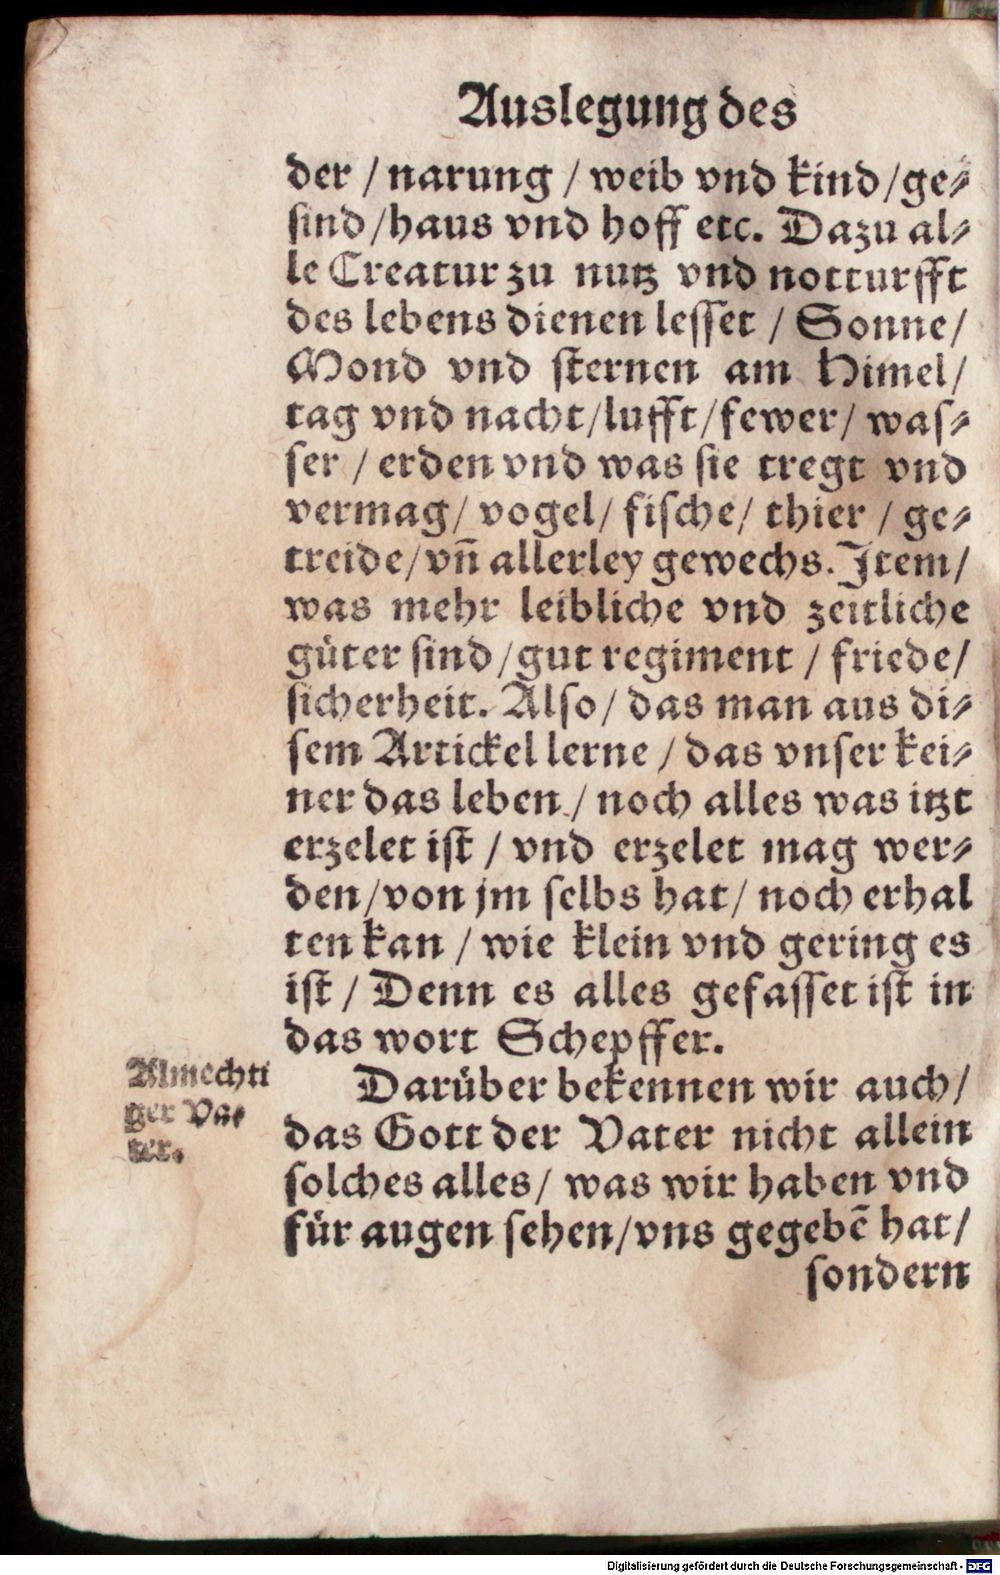 Auslegung des
der / narung / weib vnd kind / ge⸗
ſind / haus vnd hoff etc. Dazu al⸗
le Creatur zu nutz vnd notturfft
des lebens dienen leſſet / Sonne /
Mond vnd ſternen am Himel /
tag vnd nacht / lufft / fewer / waſ⸗
ſer / erden vnd was ſie tregt vnd
vermag / vogel / fiſche / thier / ge⸗
treide / vñ allerley gewechs. Item /
was mehr leibliche vnd zeitliche
güter ſind / gut regiment / friede /
ſicherheit. Alſo / das man aus di⸗
ſem Artickel lerne / das vnſer kei⸗
ner das leben / noch alles was itzt
erzelet iſt / vnd erzelet mag wer⸗
den / von jm ſelbs hat / noch erhal
ten kan / wie klein vnd gering es
iſt / Denn es alles gefaſſet iſt in
das wort Schepffer.
Almechti
ger Va⸗
ter.
Darüber bekennen wir auch /
das Gott der Vater nicht allein
ſolches alles / was wir haben vnd
für augen ſehen / vns gegebē hat /
ſondern
Digitalisierung gefördert durch die Deutsche Forschungsgemeinschaft - DFG